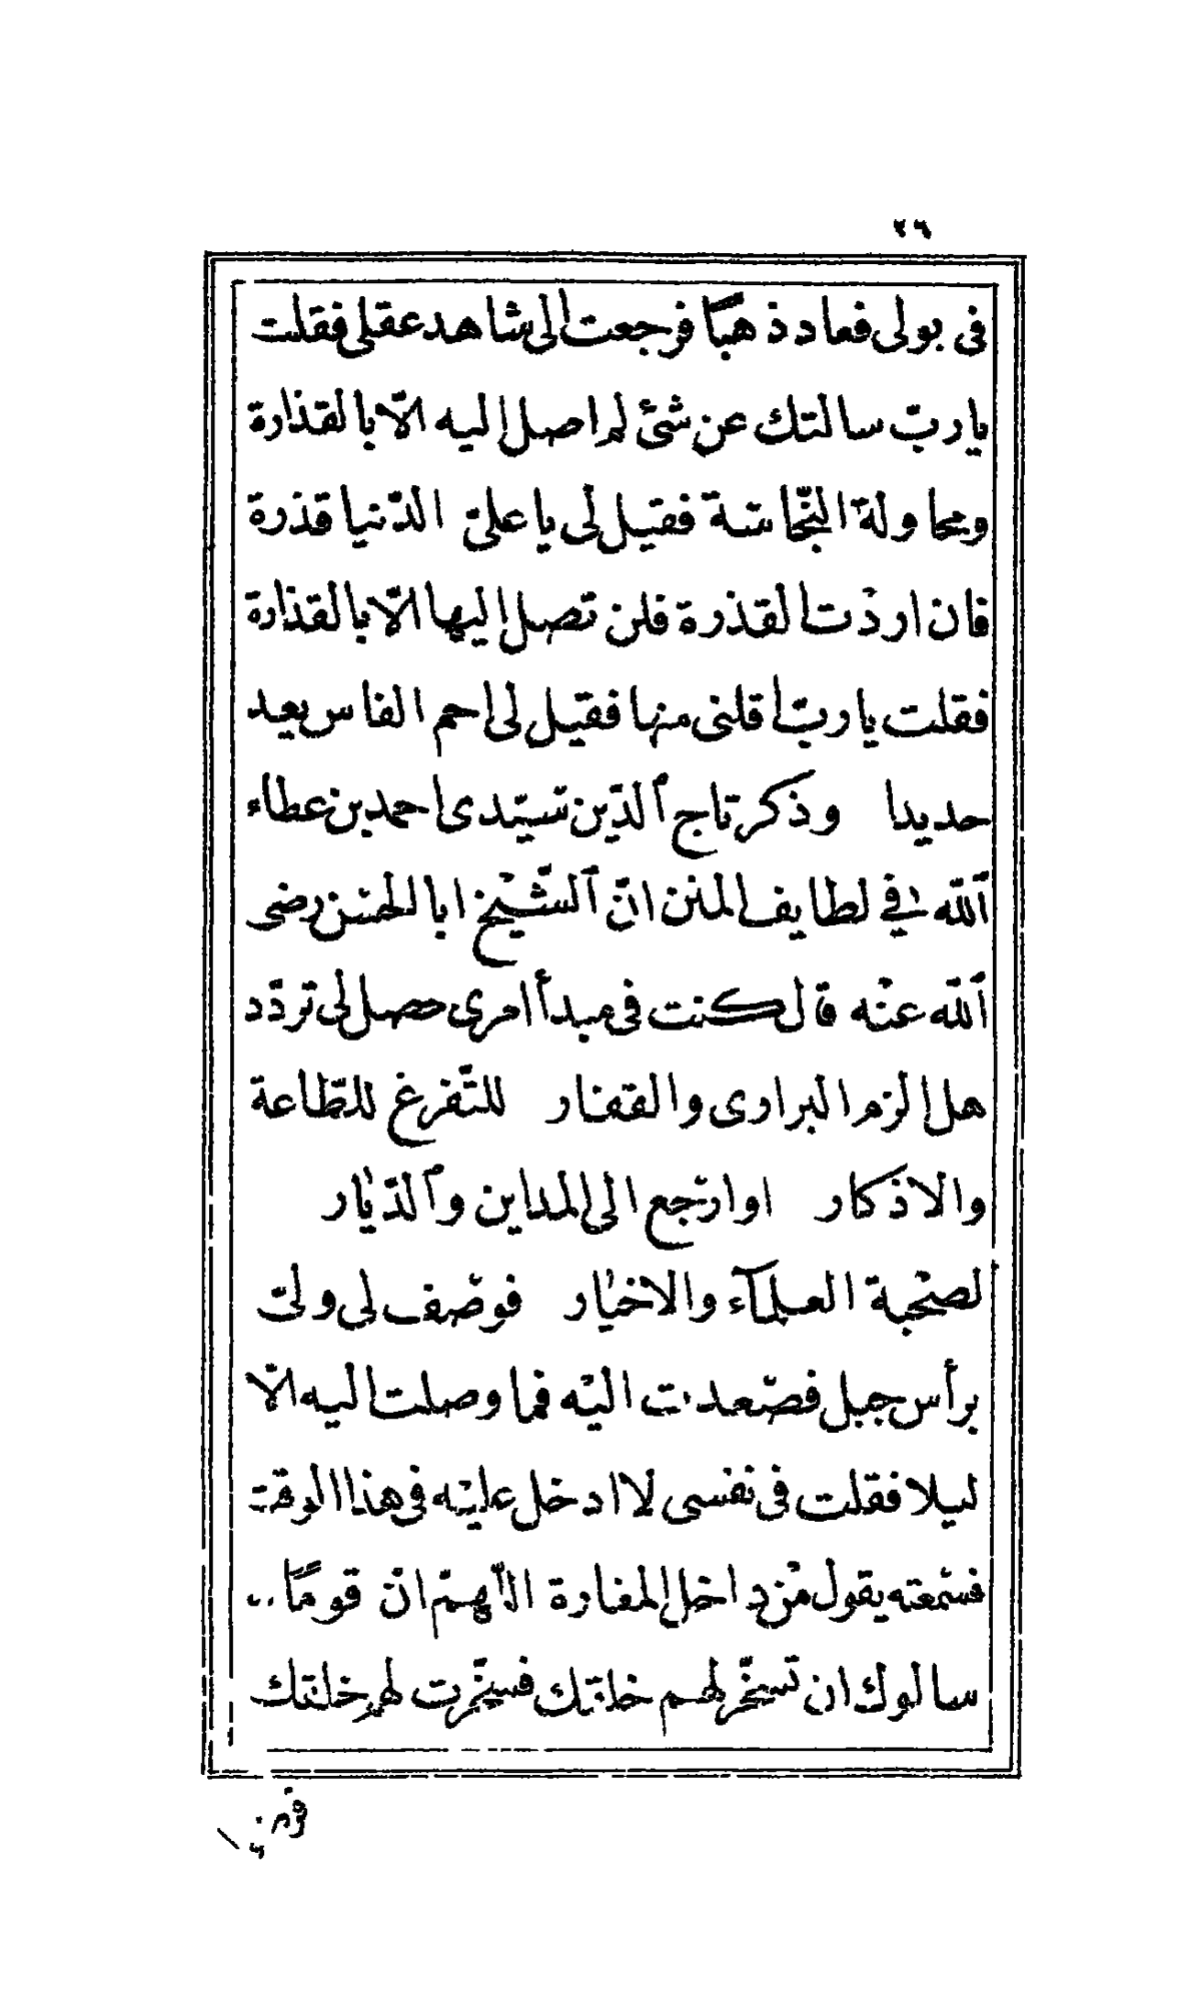 ٢٦
فى بولى فعاد ذهبًا فرجعت الى شاهد عقلى فقلت
يا ربّ سالتك عن شئ لم اصل اليه الّا بالقذارة
ومحاولة النّجاسة فقيل لى يا علىّ الدّنيا قذرة
فان اردْت القذرة فلن تصل اليها الّا بالقذارة
فقلت يا ربّ اقلنى منها فقيل لى احم الفاس يعيد
حديدا وذكر تاج ٱلدّين سيّدى احمد بن عطاء
ٱللّه فى لطايف المنن انّ ٱلشّيْخ ابا الحسن رضى
ٱللّه عنْه قال كنت فى مبدأ امرى حصل لى تردّد
هل الزم البرارى والقفار للتّفرغ للطّاعة
والاذكار او ارجع الى المداين وٱلدّيار
لصحْبة العلمآء والاخيار فوصّف لى ولىّ
برأس جبل فصعدت اليْه فما وصلت اليه الّا
ليلا فقلت فى نفسى لا ادخل عليْه فى هذا الوقت
فسمعته يقول منْ داخل المغارة اللّهمّ انّ قومًا..
سالوك ان تسخّر لهم خلقك فسخّرت لهم خلقك